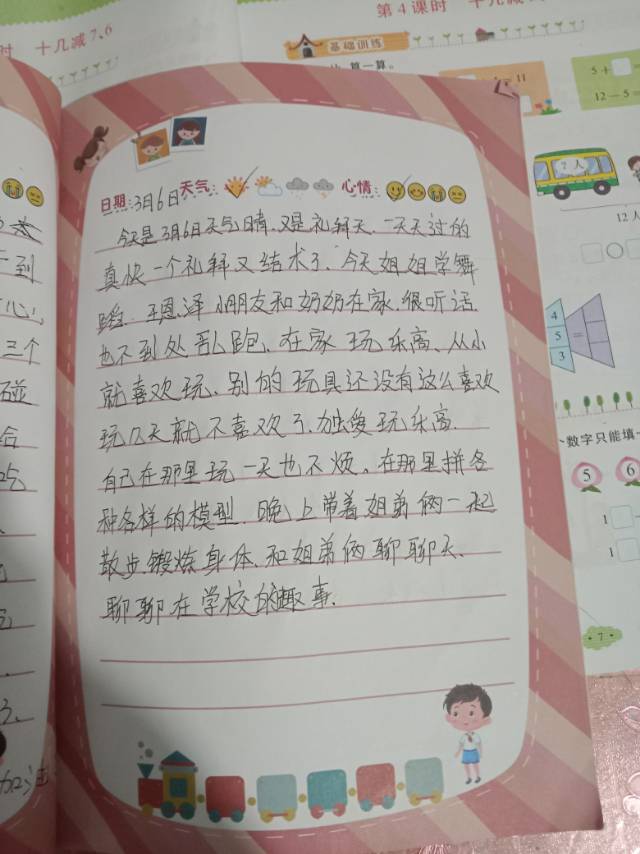 时 十几减7、6
第4课时 十几减
基础训练
算一算。
11
5+
12-5=
?人
12人
4
5
3
=
数字只能填一
5
6
1
1
·7·
日期:3月6日 天气: 心情:
今天是3月6日天气晴.又是礼拜天.一天天过的
真快一个礼拜又结术了.今天姐姐学舞
蹈.王恩泽小朋友和奶奶在家.很听话
也不到处乱跑.在家玩乐高、从小
就喜欢玩、别的玩具还没有这么喜欢
玩几天就不喜欢了.独爱玩乐高.
自己在那里玩一天也不烦。在那里拼各
种各样的模型.晚上带着姐弟俩一起
散步.锻炼身体.和姐弟俩聊聊天、
聊聊在学校的趣事.
到
心
三个
碰
合
吃